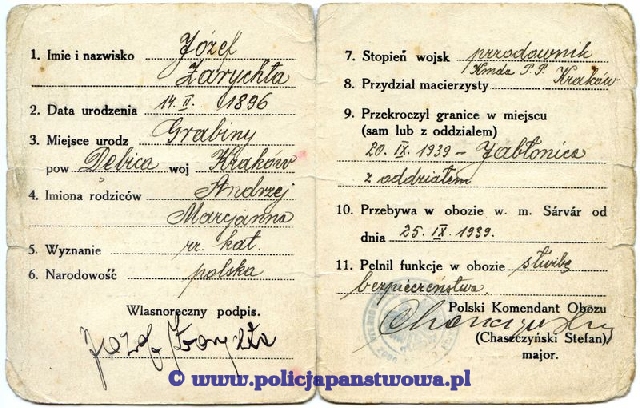 1. Imie i nazwisko Józef
Zarychta
2. Data urodzenia 14. II. 1896
3. Miejsce urodz Grabiny
pow Dębica woj Kraków
4. Imiona rodziców Andrzej
Maryanna
5. Wyznanie rz. kat.
6. Narodowość polska
Własnoręczny podpis.
Józef Zarychta
7. Stopień wojsk przodownik
8. Przydział macierzysty Kmda P.P. Kraków
9. Przekroczył granice w miejscu
(sam lub z oddziałem)
20. IX. 1939 - Jabłonica
z oddziałem
10. Przebywa w obozie w. m. Sárvár od
dnia 25. IX. 1939.
11. Pełnil funkcje w obozie służbę
bezpieczeństwa.
Polski Komendant Obozu
(Chaszczyński Stefan)
major.
© www.policjapanstwowa.pl